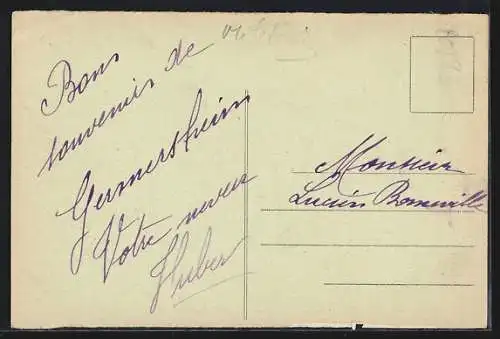 Bons
souvenirs de
Germersheim
Votre neveu
Huber
Monsieur
Lucien Bonneville